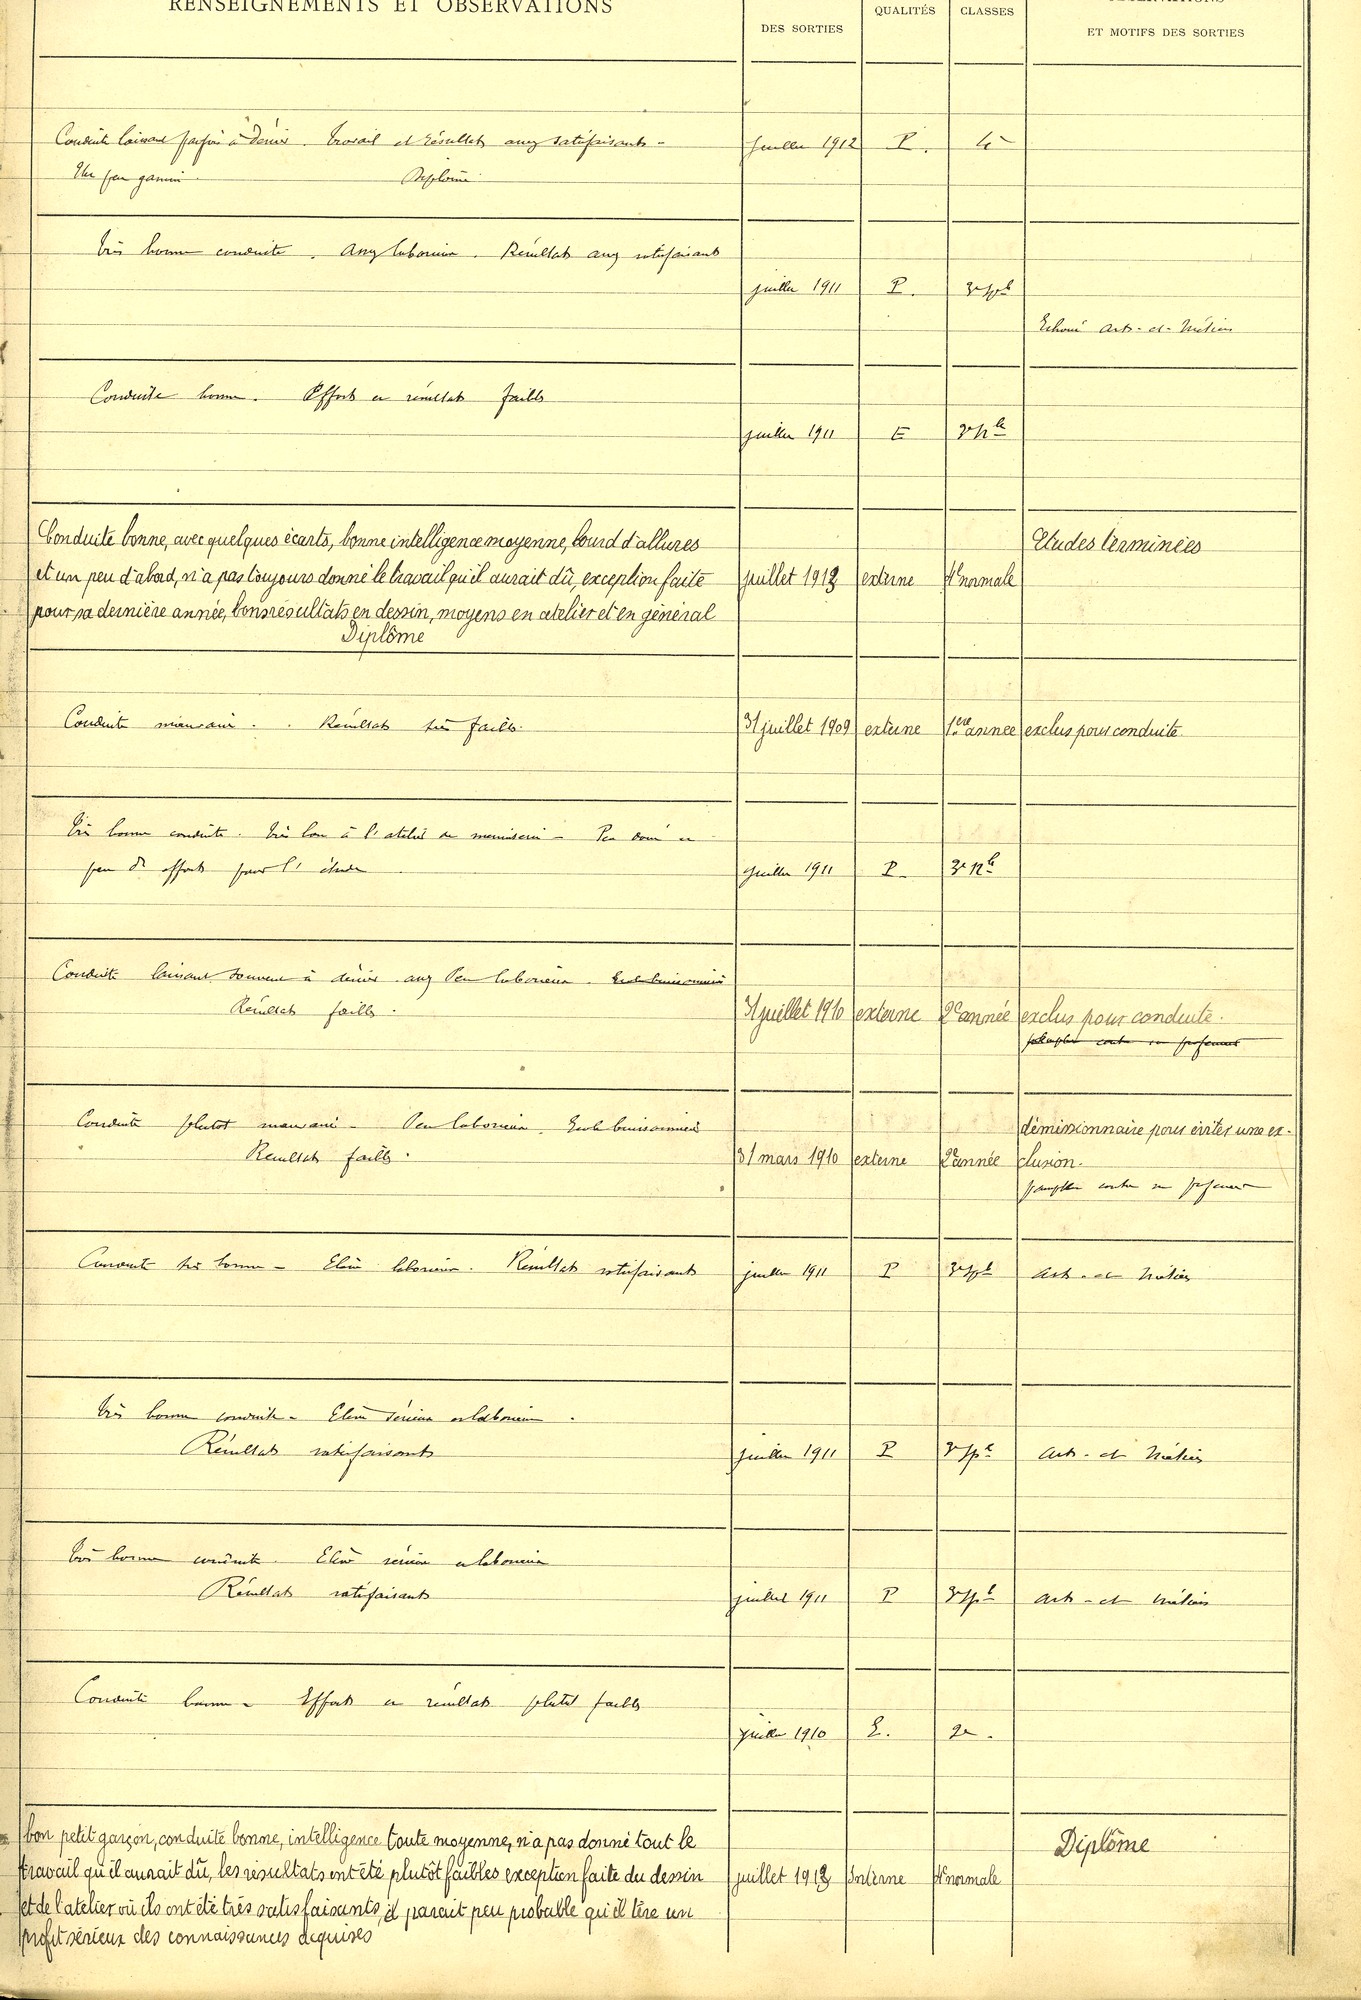 RENSEIGNEMENTS ET OBSERVATIONS
DES SORTIES
QUALITÉS
CLASSES
OBSERVATIONS
ET MOTIFS DES SORTIES
Conduite laissant parfois à désirer. Travail et résultats assez satisfaisants - juillet 1912 P. 4e
Un peu gamin. Diplômé
Très bonne conduite. Assez laborieux. Résultats assez satisfaisants
juillet 1911 P.
Echoué Arts-et-Métiers
Conduite bonne. Efforts et résultats faibles
juillet 1911 E 3e Nle
Conduite bonne, avec quelques écarts, bonne intelligence moyenne, lourd d'allures Etudes terminées
et un peu d'abord, n'a pas toujours donné le travail qu'il aurait dû, exception faite juillet 1912 externe 4e normale
pour sa dernière année, bons résultats en dessin, moyens en atelier et en général
Diplôme
Conduite mauvaise. Résultats très faibles. 31 juillet 1909 externe 1ère année exclus pour conduite
Très bonne conduite. Très bon à l'atelier de menuiserie - Peu doué et
peu d'efforts pour l'étude juillet 1911 P. 3e Nle
Conduite laissant souvent à désirer assez Peu laborieux. Ecole buissonnière
Résultats faibles. 31 juillet 1910 externe 2e année exclus pour conduite.
contre un professeur
Conduite plutot mauvaise - Peu laborieux. Ecole buissonnière démissionnaire pour éviter une ex-
Resultats faibles. 31 mars 1910 externe 2e année clusion.
pamphlet contre un professeur
Conduite très bonne - Elève laborieux. Résultats satisfaisants juillet 1911 P Arts-et-Métiers
Très bonne conduite - Elève sérieux et laborieux.
Résultats satisfaisants juillet 1911 P Arts-et-Métiers
Très bonne conduite. Elève sérieux et laborieux
Résultats satisfaisants juillet 1911 P Arts-et-Métiers
Conduite bonne - Efforts et résultats plutot faibles
juillet 1910 E. 2e.
bon petit garçon, conduite bonne, intelligence toute moyenne, n'a pas donné tout le Diplôme
travail qu'il aurait dû, les résultats ont été plutôt faibles exception faite du dessin juillet 1912 Interne 4e normale
et de l'atelier où ils ont été très satisfaisants, il parait peu probable qu'il tère un
profit sérieux des connaissances aquises